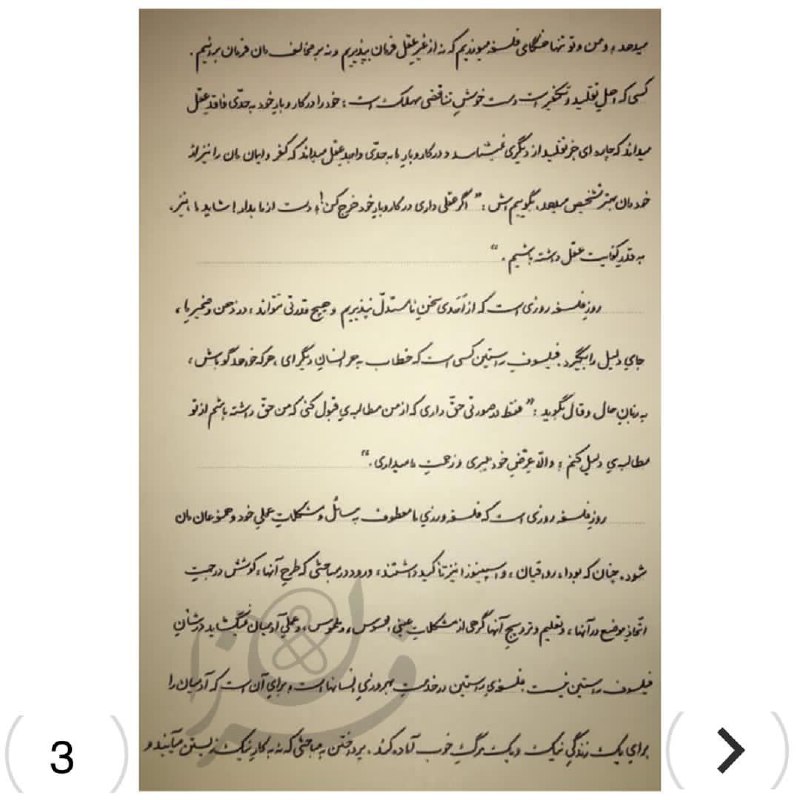 میدهد، و من و تو تنها هنگامی فلسفه میورزیم که نه از غیرِ عقل فرمان بپذیریم و نه بر مخالفِ مان فرمان برانیم.
کسی که اهلِ تقلید و تکفیر است دستخوشِ تناقضی مهلک است: خود را در کار و بارِ خود به حدّی فاقدِ عقل
میداند که چاره ای جز تقلید از دیگری نمیشناسد و در کار و بارِ ما به حدّی واجدِ عقل میداند که کفر و ایمان مان را نیز از
خودمان بهتر تشخیص میدهد. بگوییم اش: "اگر عقلی داری در کار و بارِ خود خرج کن! و دست از ما بدار! شاید ما، نیز،
به قدرِ کفایت عقل داشته باشیم."
روزِ فلسفه روزی است که از اَحَدی سخنِ نامستدلّ نپذیریم و هیچ قدرتی نتواند، در ذهن و ضمیرِ ما،
جایِ دلیل را بگیرد. فیلسوفِ راستین کسی است که خطاب به هر انسانِ دیگر ای، هر که خواهد گو باش،
به زبانِ حال و قال بگوید: "فقط در صورتی حقّ داری که از من مطالبه یِ قبول کنی که من حقّ داشته باشم از تو
مطالبه یِ دلیل کنم؛ و الّا عِرضِ خود میبری و زحمتِ ما میداری."
روزِ فلسفه روزی است که فلسفه ورزیِ ما معطوف به مسائل و مشکلاتِ عملیِ خود و همنوعان مان
شود. چنان که بودا، رواقیان، و اسپینوزا نیز تأکید داشتند، ورود در مباحثی که طرحِ آنها، کوشش در جهتِ
اتّخاذِ موضع در آنها، و تعلیم و ترویجِ آنها گرهی از مشکلاتِ عینی، محسوس، و ملموس، و عملیِ آدمیان نمیگشاید در شأنِ
فیلسوفِ راستین نیست. فلسفه یِ راستین در خدمتِ بهروزیِ انسانها است و برایِ آن است که آدمیان را
برایِ یک زندگیِ نیک و یک مرگِ خوب آماده کند. پرداختن به مباحثی که نه به کارِ نیک زیستن میآیند و
3